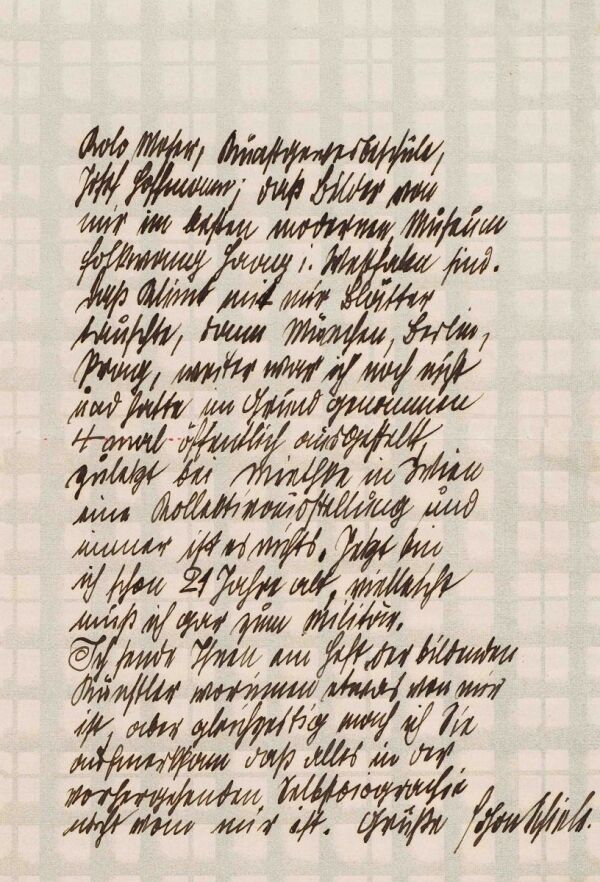 Kolo Moser, Kunstgewerbeschule,
Josef Hoffmann; daß Bilder von
mir im besten modernen Museum
Folkwang Haag i. Westfalen sind.
daß Klimt mit mir Blätter
tauschte, dann München, Berlin,
Prag, weiter war ich noch nicht
und hatte im Grund genommen
4 mal öffentlich ausgestellt,
zuletzt bei Miethke in Wien
eine Kollektivausstellung und
immer ist es nichts. Jetzt bin
ich schon 21 Jahre alt, vielleicht
muß ich gar zum Militär.
Ich sende Ihnen ein Heft der bildenden
Künstler worinnen etwas von mir
ist, aber gleichzeitig mach ich Sie
aufmerksam daß alles in der
vorhergehenden Selbstbiografie
nicht von mir ist. Grüße Egon Schiele.